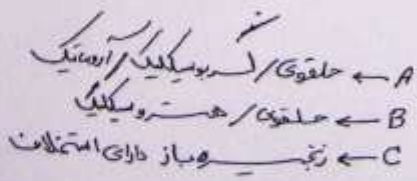 A ← حلقوی / کربوسیکلیک / آروماتیک
B ← حلقوی / هتروسیکلیک
C ← زنجیره باز دارای استخلاف